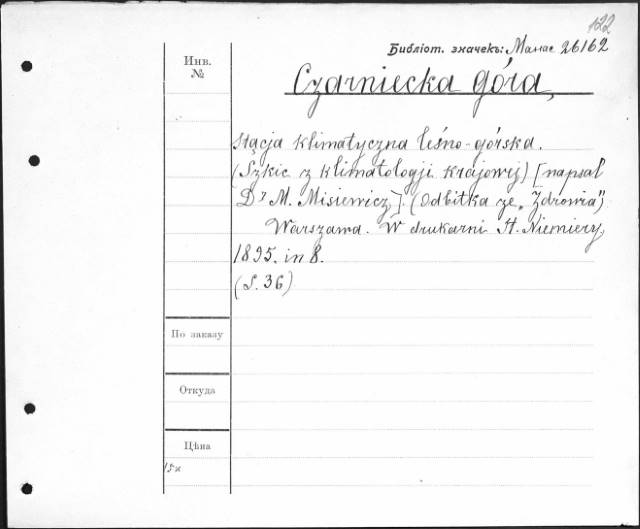 122
Библіот. значекъ: Манас 26162
Инв.
№
Czarniecka góra,
stacja klimatyczna leśno-górska.
(Szkic z klimatologji krajowej) [napsał
Dr M. Misiewicz]. (Odbitka ze „Zdrowia")
Warszawa. W drukarni H. Niemiery,
1895. in 8.
(S. 36)
По заказу
Откуда
Цѣна
15к